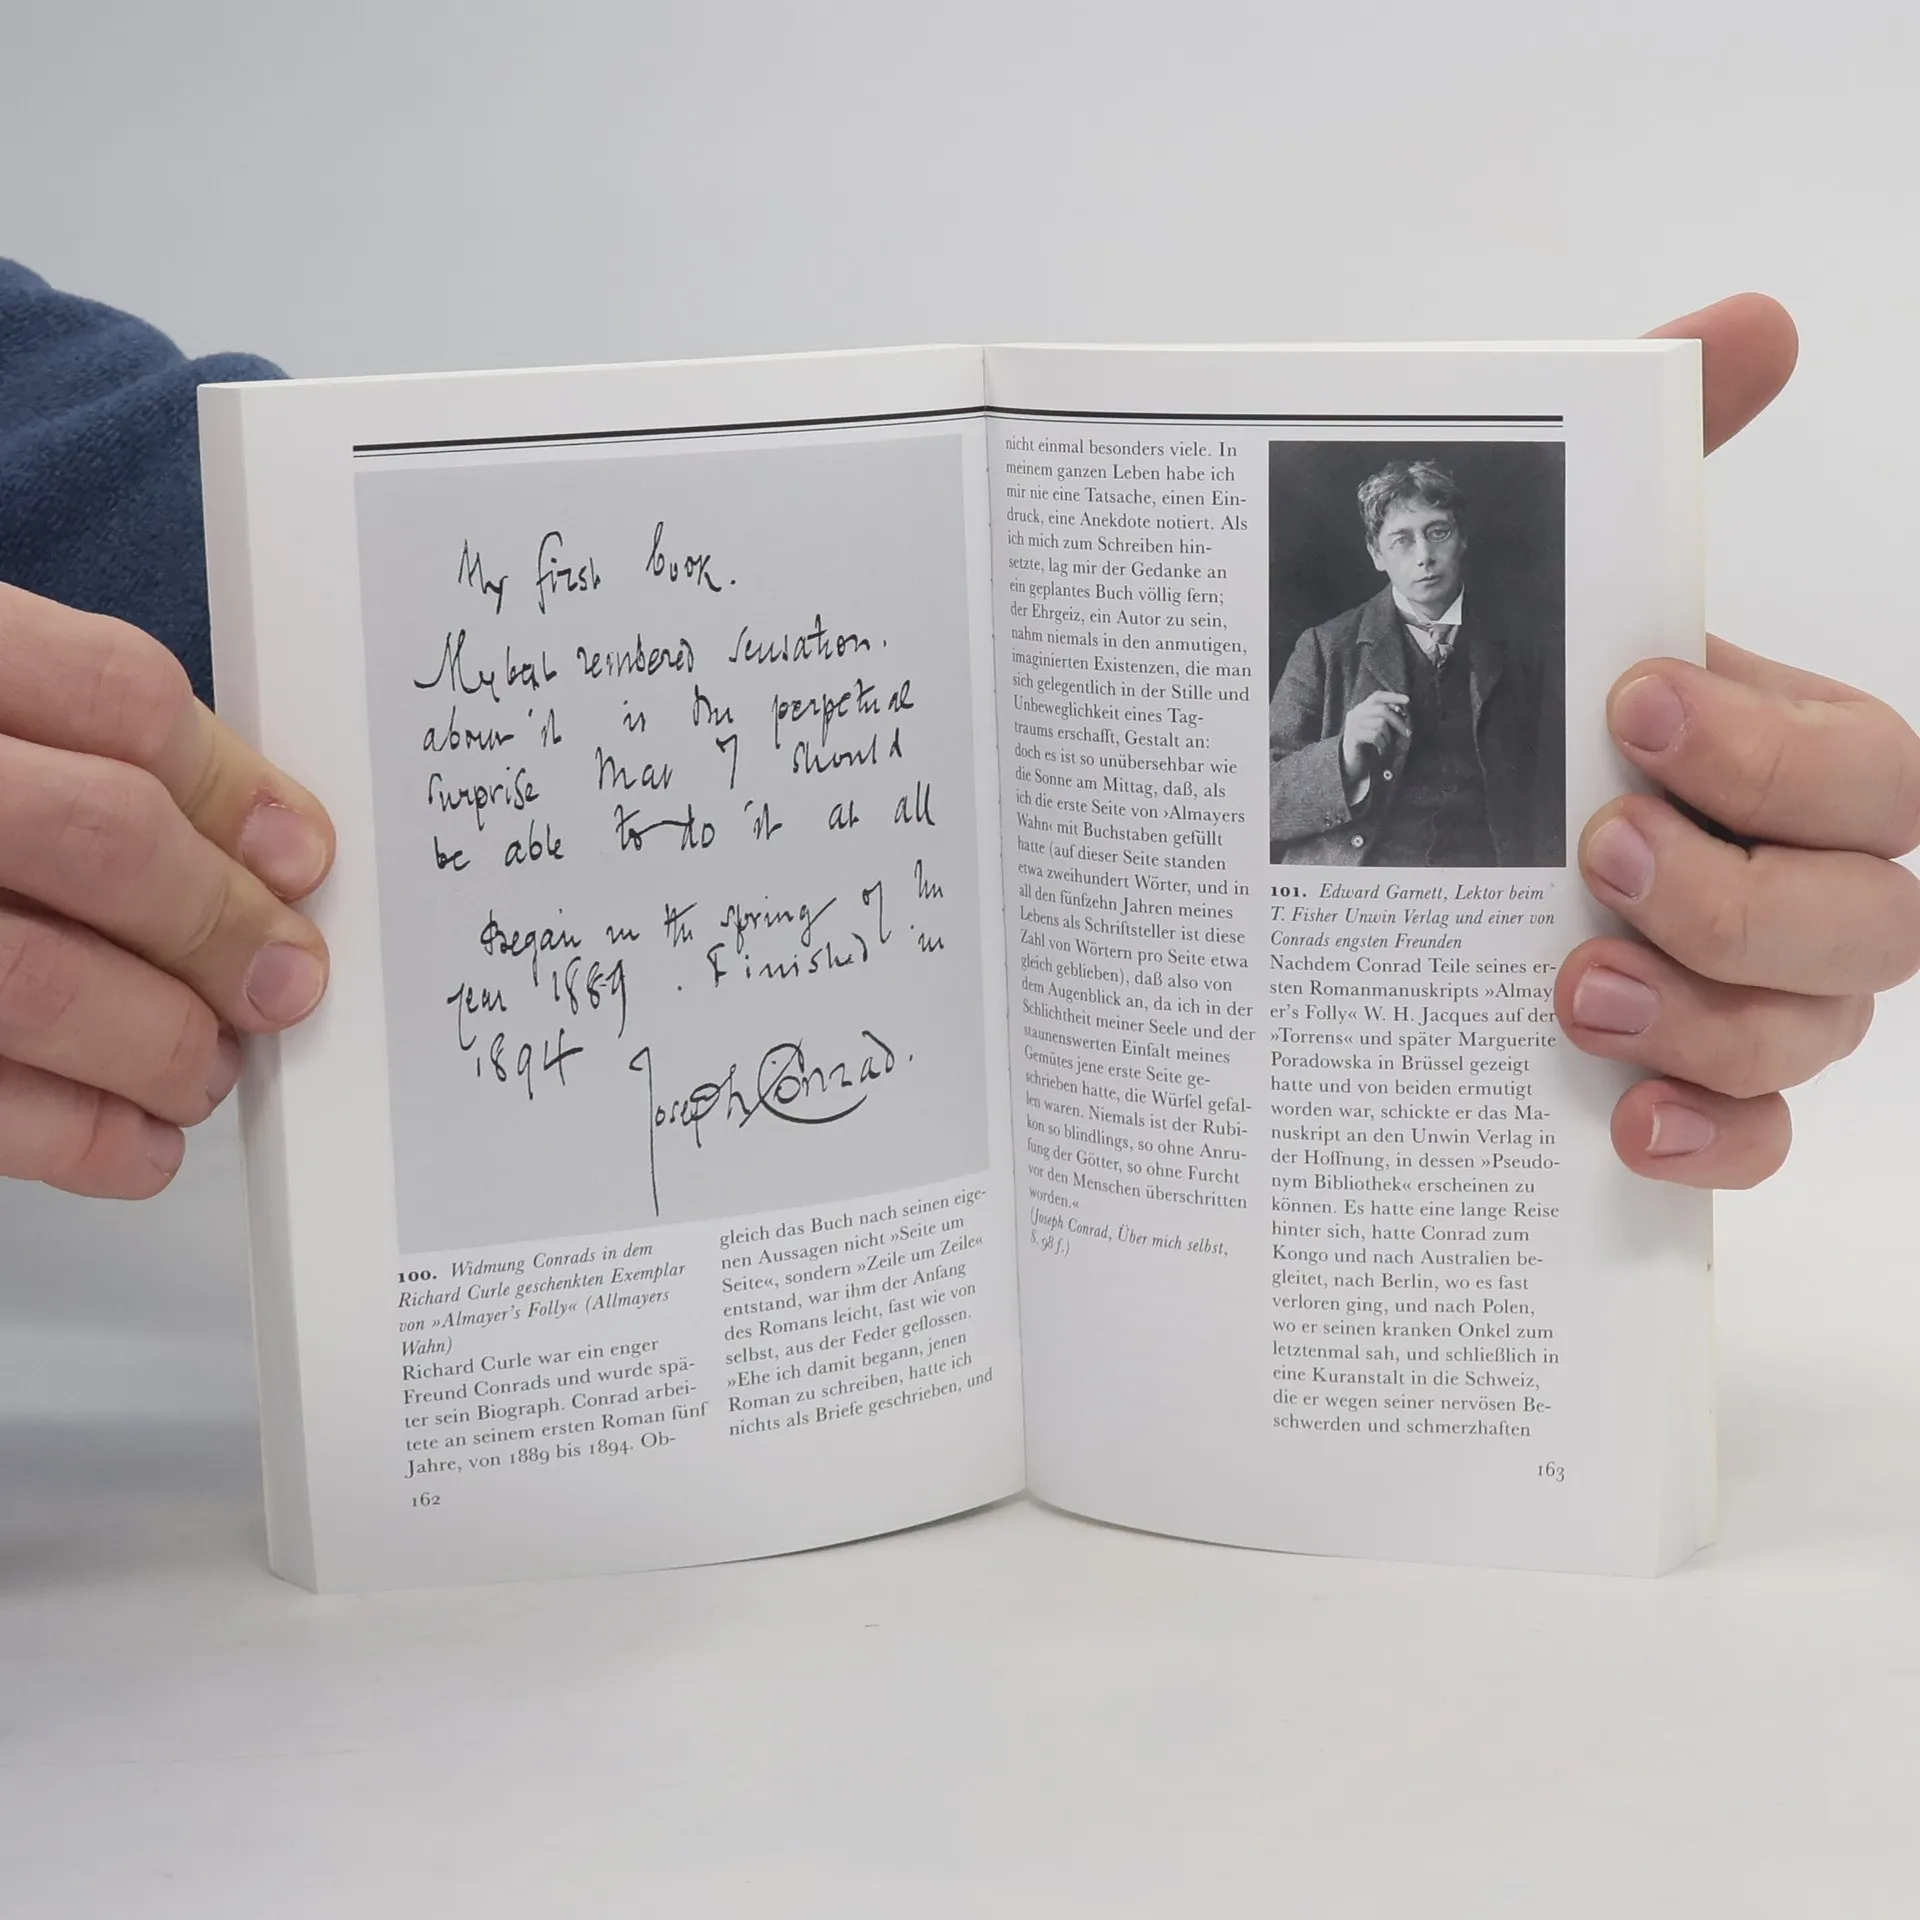 My first book.
My best rembered sensation.
about it is the perpetual
surprise that I should
be able to do it at all
Began in the spring of the
year 1889. Finished in
1894 Joseph Conrad.
100. Widmung Conrads in dem
Richard Curle geschenkten Exemplar
von »Almayer's Folly« (Allmayers
Wahn)
Richard Curle war ein enger
Freund Conrads und wurde spä-
ter sein Biograph. Conrad arbei-
tete an seinem ersten Roman fünf
Jahre, von 1889 bis 1894. Ob-
162
gleich das Buch nach seinen eige-
nen Aussagen nicht »Seite um
Seite«, sondern »Zeile um Zeile«
entstand, war ihm der Anfang
des Romans leicht, fast wie von
selbst, aus der Feder geflossen.
»Ehe ich damit begann, jenen
Roman zu schreiben, hatte ich
nichts als Briefe geschrieben, und
nicht einmal besonders viele. In
meinem ganzen Leben habe ich
mir nie eine Tatsache, einen Ein-
druck, eine Anekdote notiert. Als
ich mich zum Schreiben hin-
setzte, lag mir der Gedanke an
ein geplantes Buch völlig fern;
der Ehrgeiz, ein Autor zu sein,
nahm niemals in den anmutigen,
imaginierten Existenzen, die man
sich gelegentlich in der Stille und
Unbeweglichkeit eines Tag-
traums erschafft, Gestalt an:
doch es ist so unübersehbar wie
die Sonne am Mittag, daß, als
ich die erste Seite von ›Almayers
Wahn‹ mit Buchstaben gefüllt
hatte (auf dieser Seite standen
etwa zweihundert Wörter, und in
all den fünfzehn Jahren meines
Lebens als Schriftsteller ist diese
Zahl von Wörtern pro Seite etwa
gleich geblieben), daß also von
dem Augenblick an, da ich in der
Schlichtheit meiner Seele und der
staunenswerten Einfalt meines
Gemütes jene erste Seite ge-
schrieben hatte, die Würfel gefal-
len waren. Niemals ist der Rubi-
kon so blindlings, so ohne Anru-
fung der Götter, so ohne Furcht
vor den Menschen überschritten
worden.«
(Joseph Conrad, Über mich selbst,
S. 98 f.)
101. Edward Garnett, Lektor beim
T. Fisher Unwin Verlag und einer von
Conrads engsten Freunden
Nachdem Conrad Teile seines er-
sten Romanmanuskripts »Almay
er's Folly« W. H. Jacques auf der
»Torrens« und später Marguerite
Poradowska in Brüssel gezeigt
hatte und von beiden ermutigt
worden war, schickte er das Ma-
nuskript an den Unwin Verlag in
der Hoffnung, in dessen »Pseudo-
nym Bibliothek« erscheinen zu
können. Es hatte eine lange Reise
hinter sich, hatte Conrad zum
Kongo und nach Australien be-
gleitet, nach Berlin, wo es fast
verloren ging, und nach Polen,
wo er seinen kranken Onkel zum
letztenmal sah, und schließlich in
eine Kuranstalt in die Schweiz,
die er wegen seiner nervösen Be-
schwerden und schmerzhaften
163